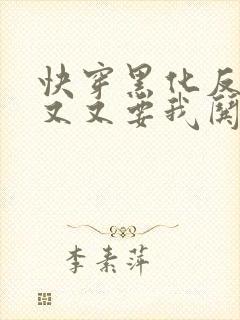 快穿黑化反
又又要我闗
李素萍